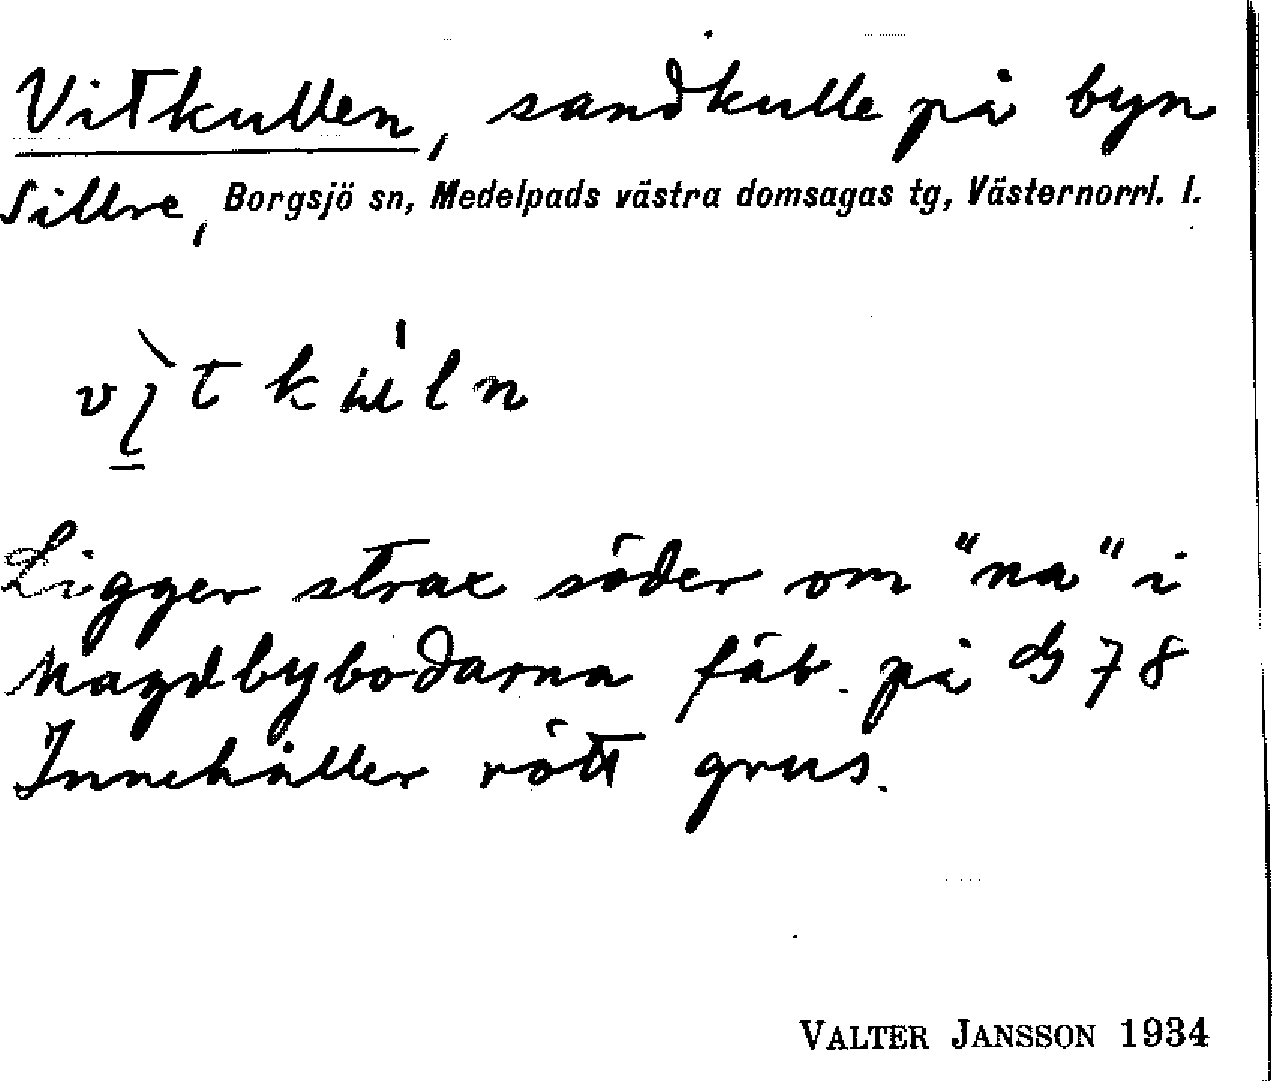 Vitkullen, sandkulle på byn
Sillre, Borgsjö sn, Medelpads västra domsagas tg, Västernorrl. l.
vı̀t kuln
Ligger strax söder om "na" i
Magdbybodarna fäb. på G 78
Innehåller rött grus.
VALTER JANSSON 1934